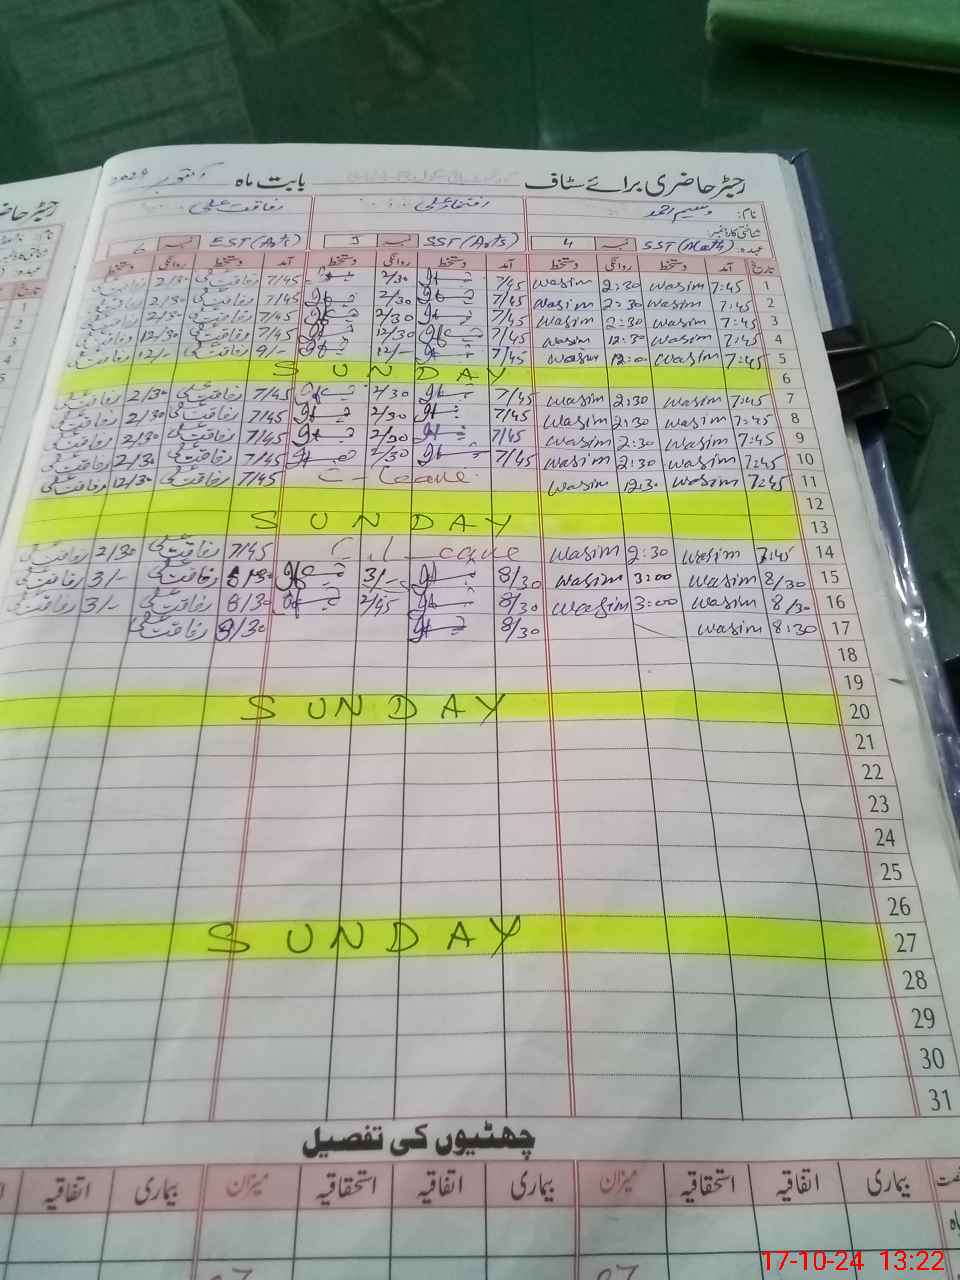 رجسٹر حاضری برائے سٹاف بابت ماہ اکتوبر 2024
نام: وسیم احمد افتخار علی رفاقت علی
شناختی کارڈ نمبر:
عہدہ: SST (Math) نمبر 4 SST (Arts) نمبر 5 EST (Arts) نمبر 6
تاریخ آمد دستخط روانگی دستخط آمد دستخط روانگی دستخط آمد دستخط روانگی دستخط
1 7:45 wasim 2:30 wasim 7/45 2/30 7/45 رفاقت علی 2/30 رفاقت علی
2 7:45 wasim 2:30 wasim 7/45 2/30 7/45 رفاقت علی 2/30 رفاقت علی
3 7:45 wasim 2:30 wasim 7/45 2/30 7/45 رفاقت علی 2/30 رفاقت علی
4 7:45 wasim 12:30 wasim 7/45 12/30 7/45 رفاقت علی 12/30 رفاقت علی
5 7:45 wasim 12:0 wasim 7/45 12/- 9/- رفاقت علی 12/- رفاقت علی
6 SUNDAY
7 7:45 wasim 2:30 wasim 7/45 2/30 7/45 رفاقت علی 2/30 رفاقت علی
8 7:45 wasim 2:30 wasim 7/45 2/30 7/45 رفاقت علی 2/30 رفاقت علی
9 7:45 wasim 2:30 wasim 7/45 2/30 7/45 رفاقت علی 2/30 رفاقت علی
10 7:45 wasim 2:30 wasim 7/45 2/30 7/45 رفاقت علی 2/30 رفاقت علی
11 7:45 wasim 12:30 wasim C-Leave 7/45 رفاقت علی 12/30 رفاقت علی
12
13 SUNDAY
14 7:45 wasim 2:30 wasim 7/45 رفاقت علی 2/30 رفاقت علی
15 8/30 wasim 3:00 wasim 8/30 3/- 8/30 رفاقت علی 3/- رفاقت علی
16 8/30 wasim 3:00 waasim 8/30 2/45 8/30 رفاقت علی 3/- رفاقت علی
17 8:30 wasim 8/30 8/30 رفاقت علی
18
19
20 SUNDAY
21
22
23
24
25
26
27 SUNDAY
28
29
30
31
چھٹیوں کی تفصیل
بیماری اتفاقیہ استحقاقیہ میزان بیماری اتفاقیہ استحقاقیہ میزان بیماری اتفاقیہ
17-10-24 13:22